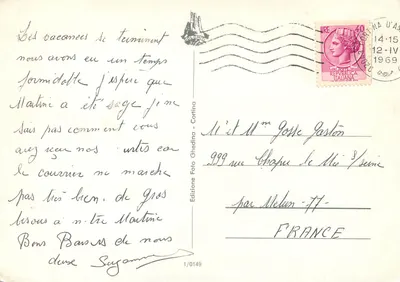 Les vacances se terminent
nous avons eu un temps
formidable j'espère que
Martine a été sage je ne
sais pas comment vous
avez reçu nos cartes car
le courrier ne marche
pas très bien. de gros
bisous a notre Martine
Bons Baisers de nous
deux Suzanne
Edizione Foto Ghedina - Cortina
1/0149
LIRE 40
D'AM
14-15
12-IV
1969
M et Mme Gosse Gaston
999 rue Chapu le Mée s/seine
par Melun -77-
FRANCE